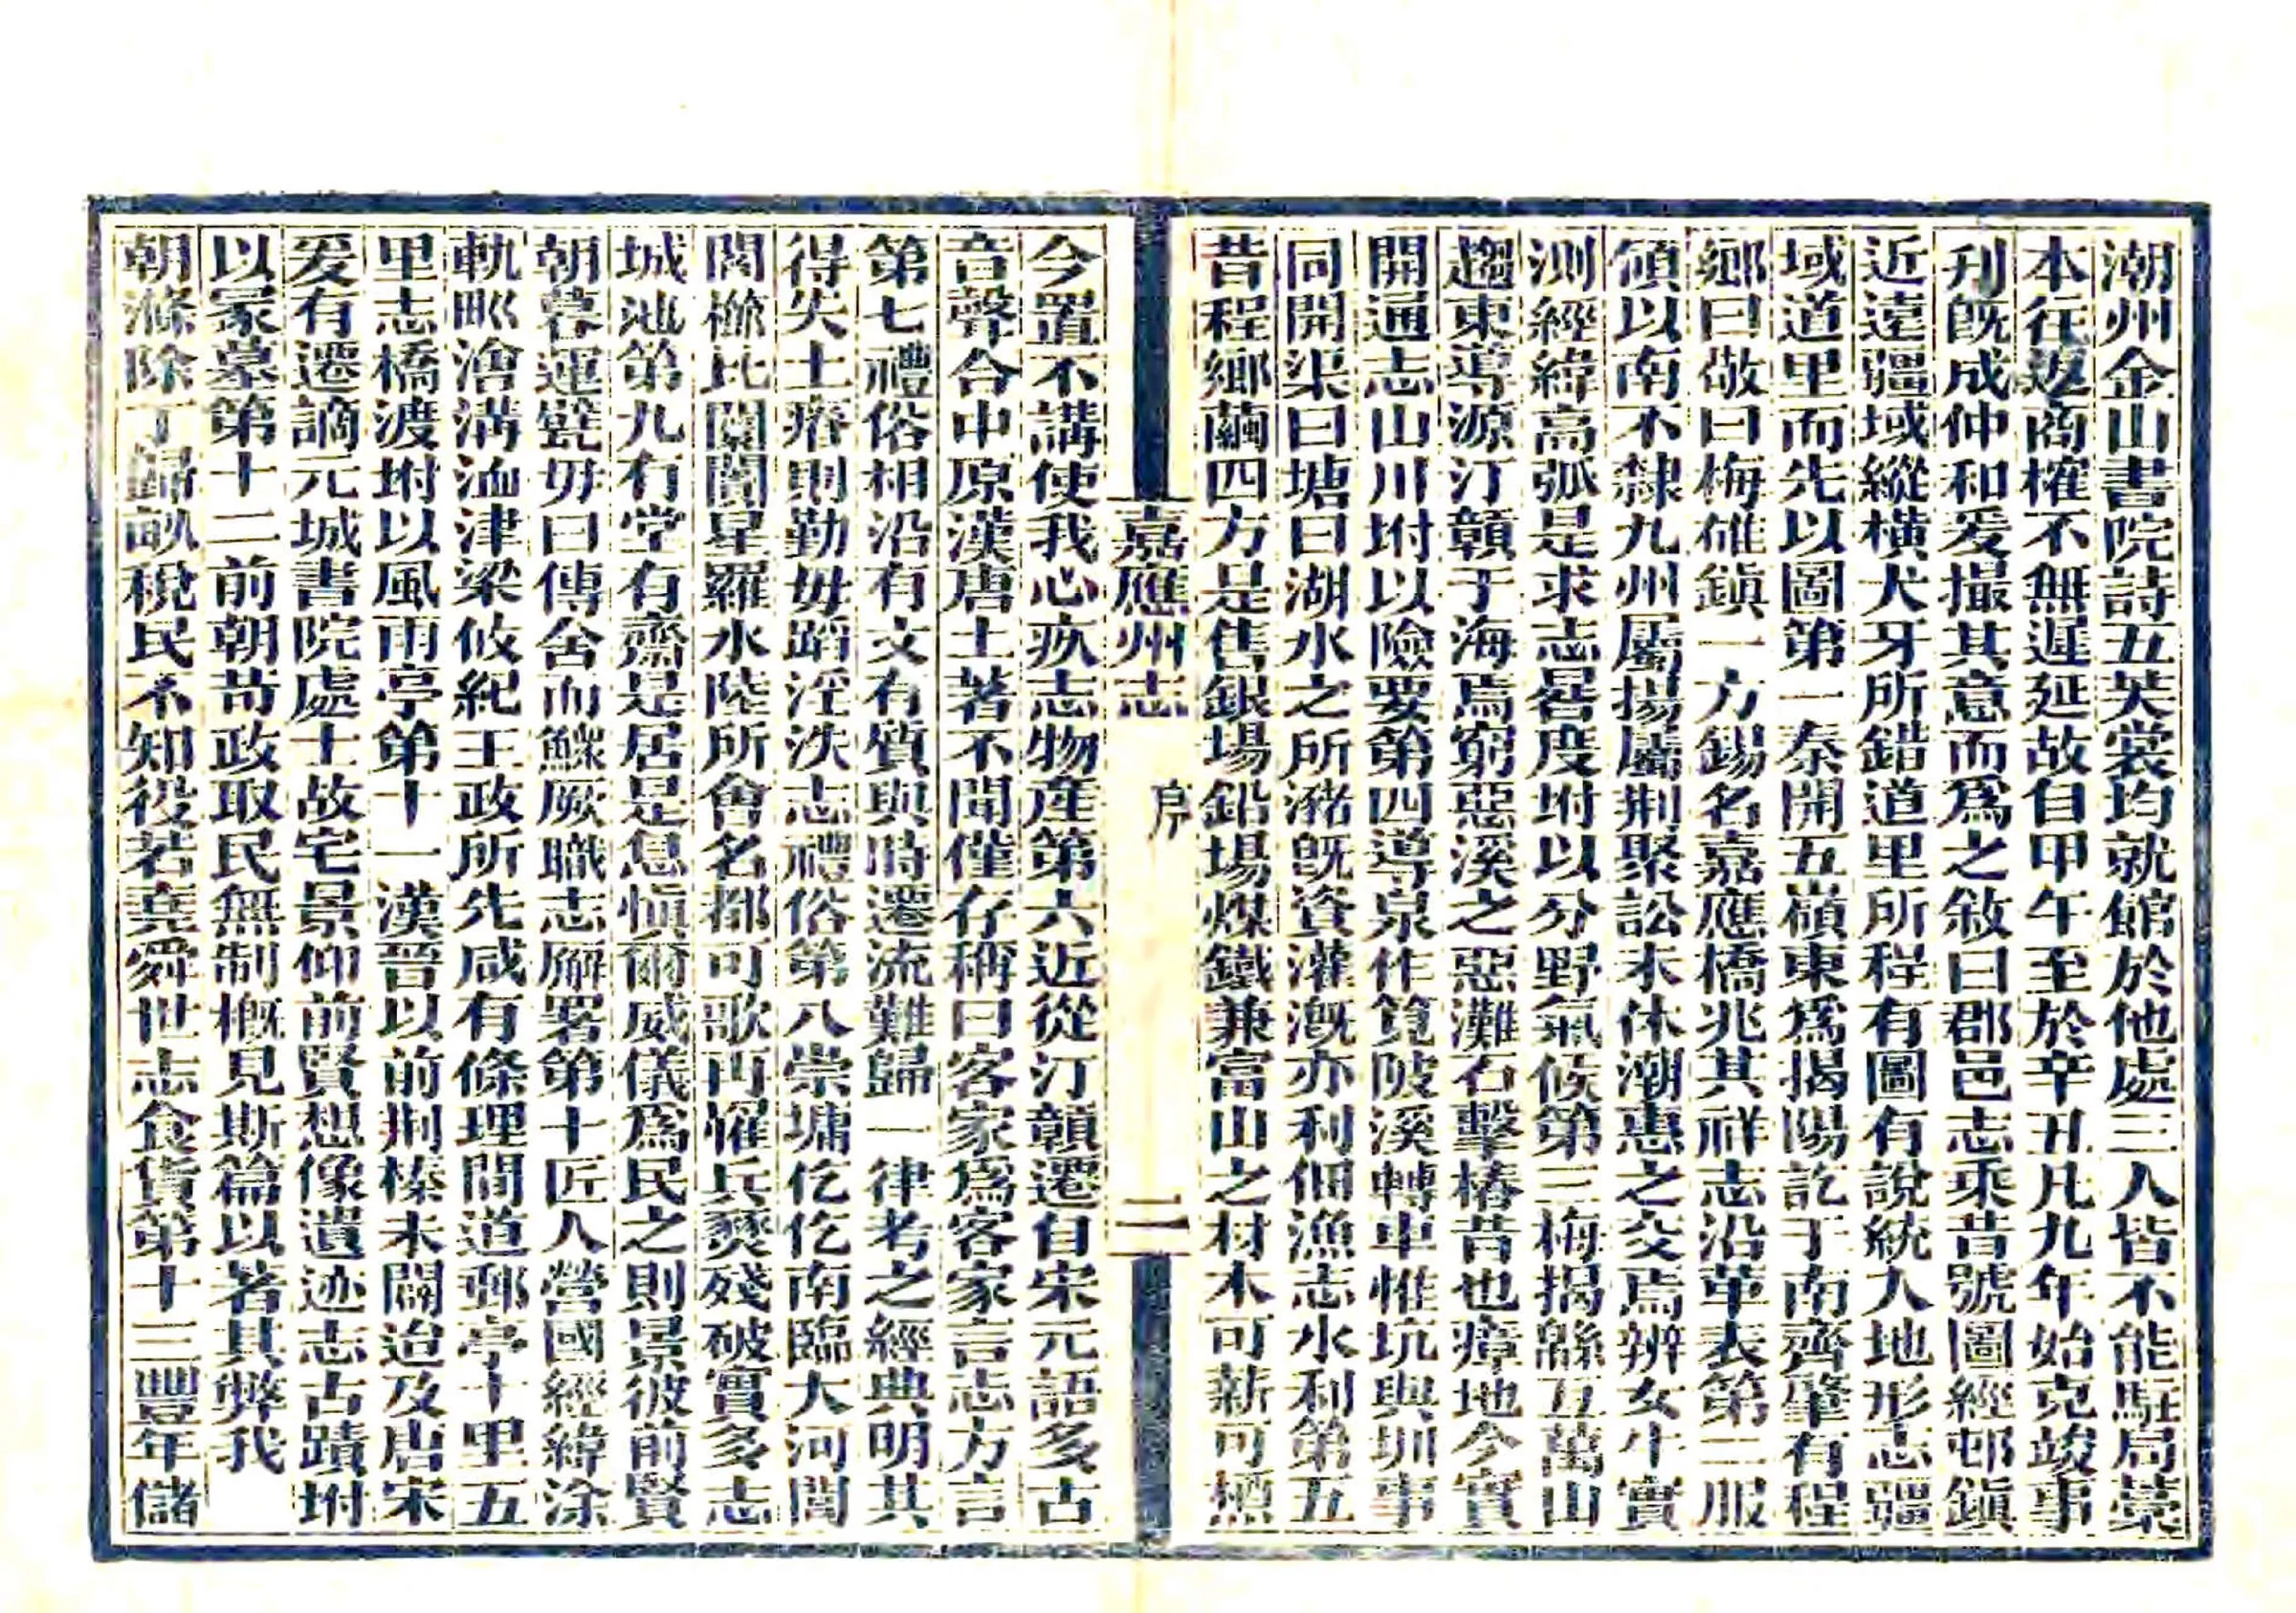 潮州金山書院詩五芙裳均就館於他處三人皆不能駐局藁
本往返商榷不無遲延故自甲午至於辛丑凡九年始克竣事
刋旣成仲和爰撮其意而爲之敘曰郡邑志乘昔號圖經邨鎭
近遠疆域縱橫犬牙所錯道里所程有圖有說統人地形志疆
域道里而先以圖第一秦開五嶺東爲揭陽訖于南齊肇有程
鄉曰敬曰梅雄鎭一方錫名嘉應橋兆其祥志沿革表第二服
領以南不隸九州屬揚屬荆聚訟未休潮惠之交焉辨女牛實
測經緯高弧是求志晷度坿以分野氣候第三梅揭緜亙萬山
趨東導源汀贛于海焉窮惡溪之惡灘石擊椿昔也瘴地今實
開通志山川坿以險要第四導泉作筧陂溪轉車惟坑與圳事
同開渠曰塘曰湖水之所瀦旣資灌漑亦利佃漁志水利第五
昔程鄉繭四方是售銀場鉛場煤鐵兼富山之材木可薪可槱
嘉應州志
序
二
今置不講使我心疚志物產第六近從汀贛遷自宋元語多古
音聲合中原漢唐土著不聞僅存稱曰客家爲客家言志方言
第七禮俗相沿有文有質與時遷流難歸一律考之經典明其
得失土瘠則勤毋蹈淫泆志禮俗第八崇墉仡仡南臨大河閭
閻櫛比闤闠星羅水陸所會名都可歌再罹兵燹殘破實多志
城池第九有堂有齋是居是息愼爾威儀爲民之則景彼前賢
朝暮運甓毋曰傳舍而鰥厥職志廨署第十匠人營國經緯涂
軌畛澮溝洫津梁攸紀王政所先咸有條理間道郵亭十里五
里志橋渡坿以風雨亭第十一漢晉以前荆榛未闢迨及唐宋
爰有遷謫元城書院處士故宅景仰前賢想像遺迹志古蹟坿
以冢墓第十二前朝苛政取民無制槪見斯篇以著其弊我
朝滌除丁歸畝稅民不知役若堯舜世志食貨第十三豐年儲